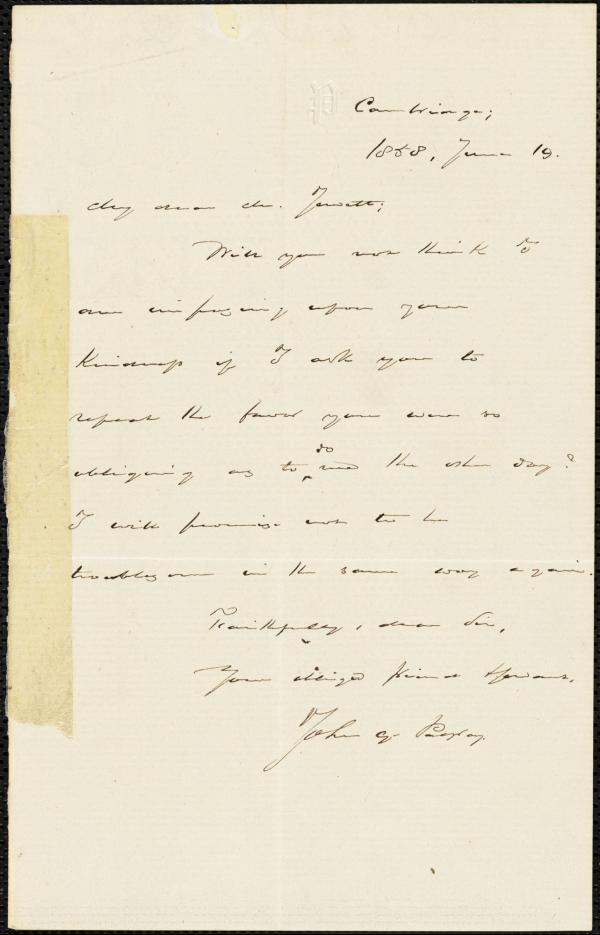 Cambridge;
1858, June 19.
My dear Mr. Jewett;
Will you not think I
am imposing upon your
kindness if I ask you to
repeat the favor you were so
obliging as to do me the other day?
I will promise not to be
troublesome in the same way again.
Faithfully, dear Sir,
Your obliged friend & servant,
John G. Palfrey.